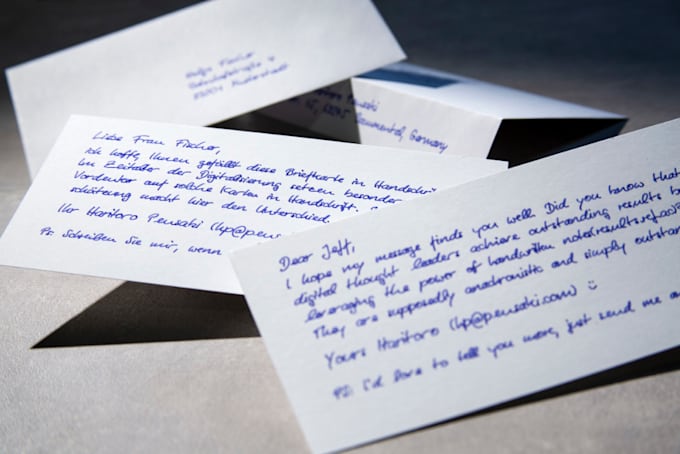 Helga Fischer
Liebe Frau Fischer,
ich hoffe, Ihnen gefällt diese Briefkarte in Handschri
Im Zeitalter der Digitalisierung setzen besonder
Vordenker auf solche Karten in Handschrift.
schätzung macht hier den Unterschied.
Ihr Haritoro Pensaki (hp@pens
PS: Schreiben Sie mir, wenn
Germany
Dear Jeff,
I hope my message finds you well. Did you know that
digital thought leaders achieve outstanding results b
leveraging the power of handwritten
They are supposedly anachronistic and simply outstan
Yours Haritoro (hp@pensaki.com) :)
PS: I'd love to tell you more, just send me a